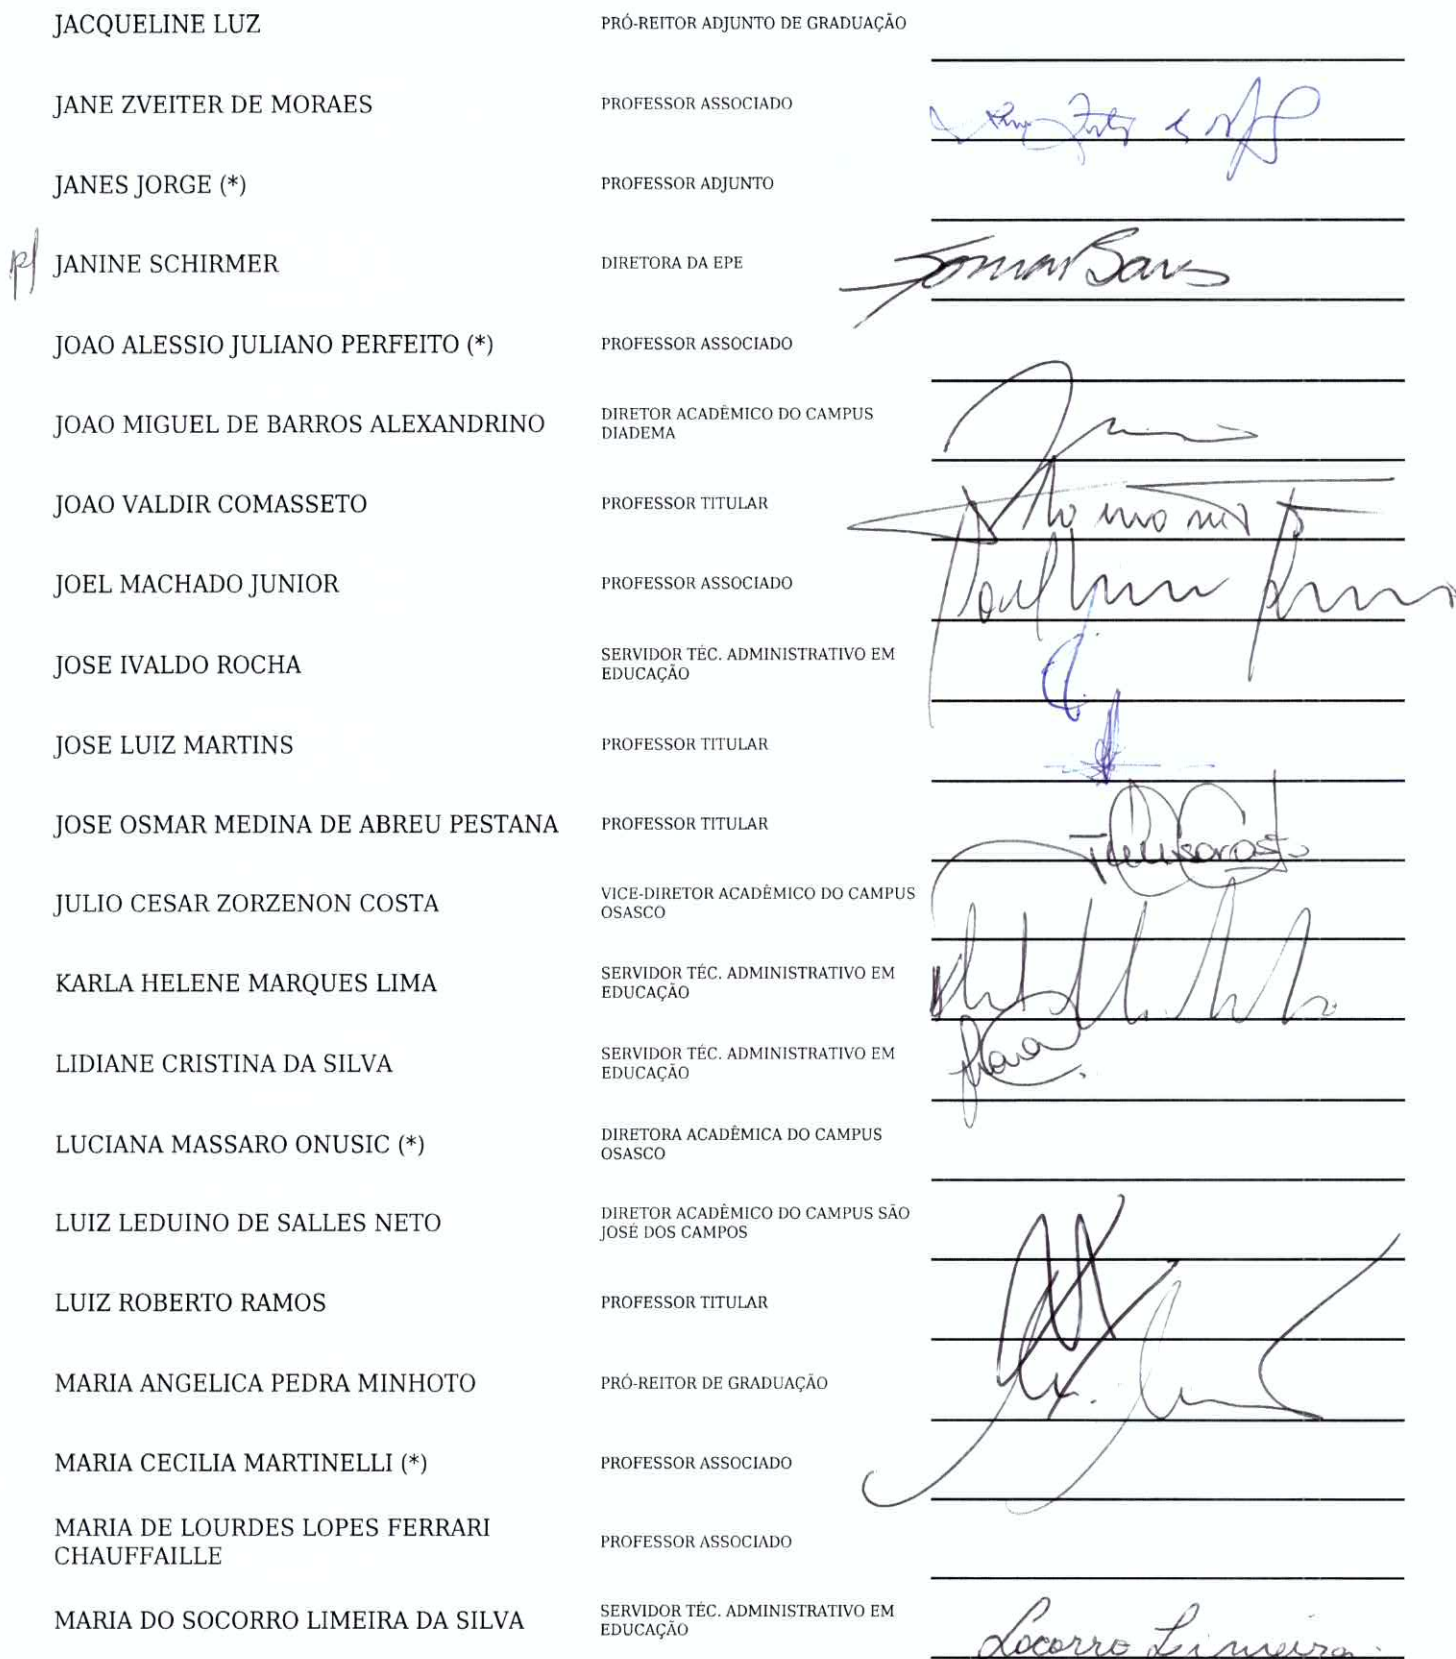 JACQUELINE LUZ PRÓ-REITOR ADJUNTO DE GRADUAÇÃO
JANE ZVEITER DE MORAES PROFESSOR ASSOCIADO
JANES JORGE (*) PROFESSOR ADJUNTO
p/ JANINE SCHIRMER DIRETORA DA EPE
JOAO ALESSIO JULIANO PERFEITO (*) PROFESSOR ASSOCIADO
JOAO MIGUEL DE BARROS ALEXANDRINO DIRETOR ACADÊMICO DO CAMPUS
DIADEMA
JOAO VALDIR COMASSETO PROFESSOR TITULAR
JOEL MACHADO JUNIOR PROFESSOR ASSOCIADO
JOSE IVALDO ROCHA SERVIDOR TÉC. ADMINISTRATIVO EM
EDUCAÇÃO
JOSE LUIZ MARTINS PROFESSOR TITULAR
JOSE OSMAR MEDINA DE ABREU PESTANA PROFESSOR TITULAR
JULIO CESAR ZORZENON COSTA VICE-DIRETOR ACADÊMICO DO CAMPUS
OSASCO
KARLA HELENE MARQUES LIMA SERVIDOR TÉC. ADMINISTRATIVO EM
EDUCAÇÃO
LIDIANE CRISTINA DA SILVA SERVIDOR TÉC. ADMINISTRATIVO EM
EDUCAÇÃO
LUCIANA MASSARO ONUSIC (*) DIRETORA ACADÊMICA DO CAMPUS
OSASCO
LUIZ LEDUINO DE SALLES NETO DIRETOR ACADÊMICO DO CAMPUS SÃO
JOSÉ DOS CAMPOS
LUIZ ROBERTO RAMOS PROFESSOR TITULAR
MARIA ANGELICA PEDRA MINHOTO PRÓ-REITOR DE GRADUAÇÃO
MARIA CECILIA MARTINELLI (*) PROFESSOR ASSOCIADO
MARIA DE LOURDES LOPES FERRARI
CHAUFFAILLE PROFESSOR ASSOCIADO
MARIA DO SOCORRO LIMEIRA DA SILVA SERVIDOR TÉC. ADMINISTRATIVO EM
EDUCAÇÃO Socorro Limeira